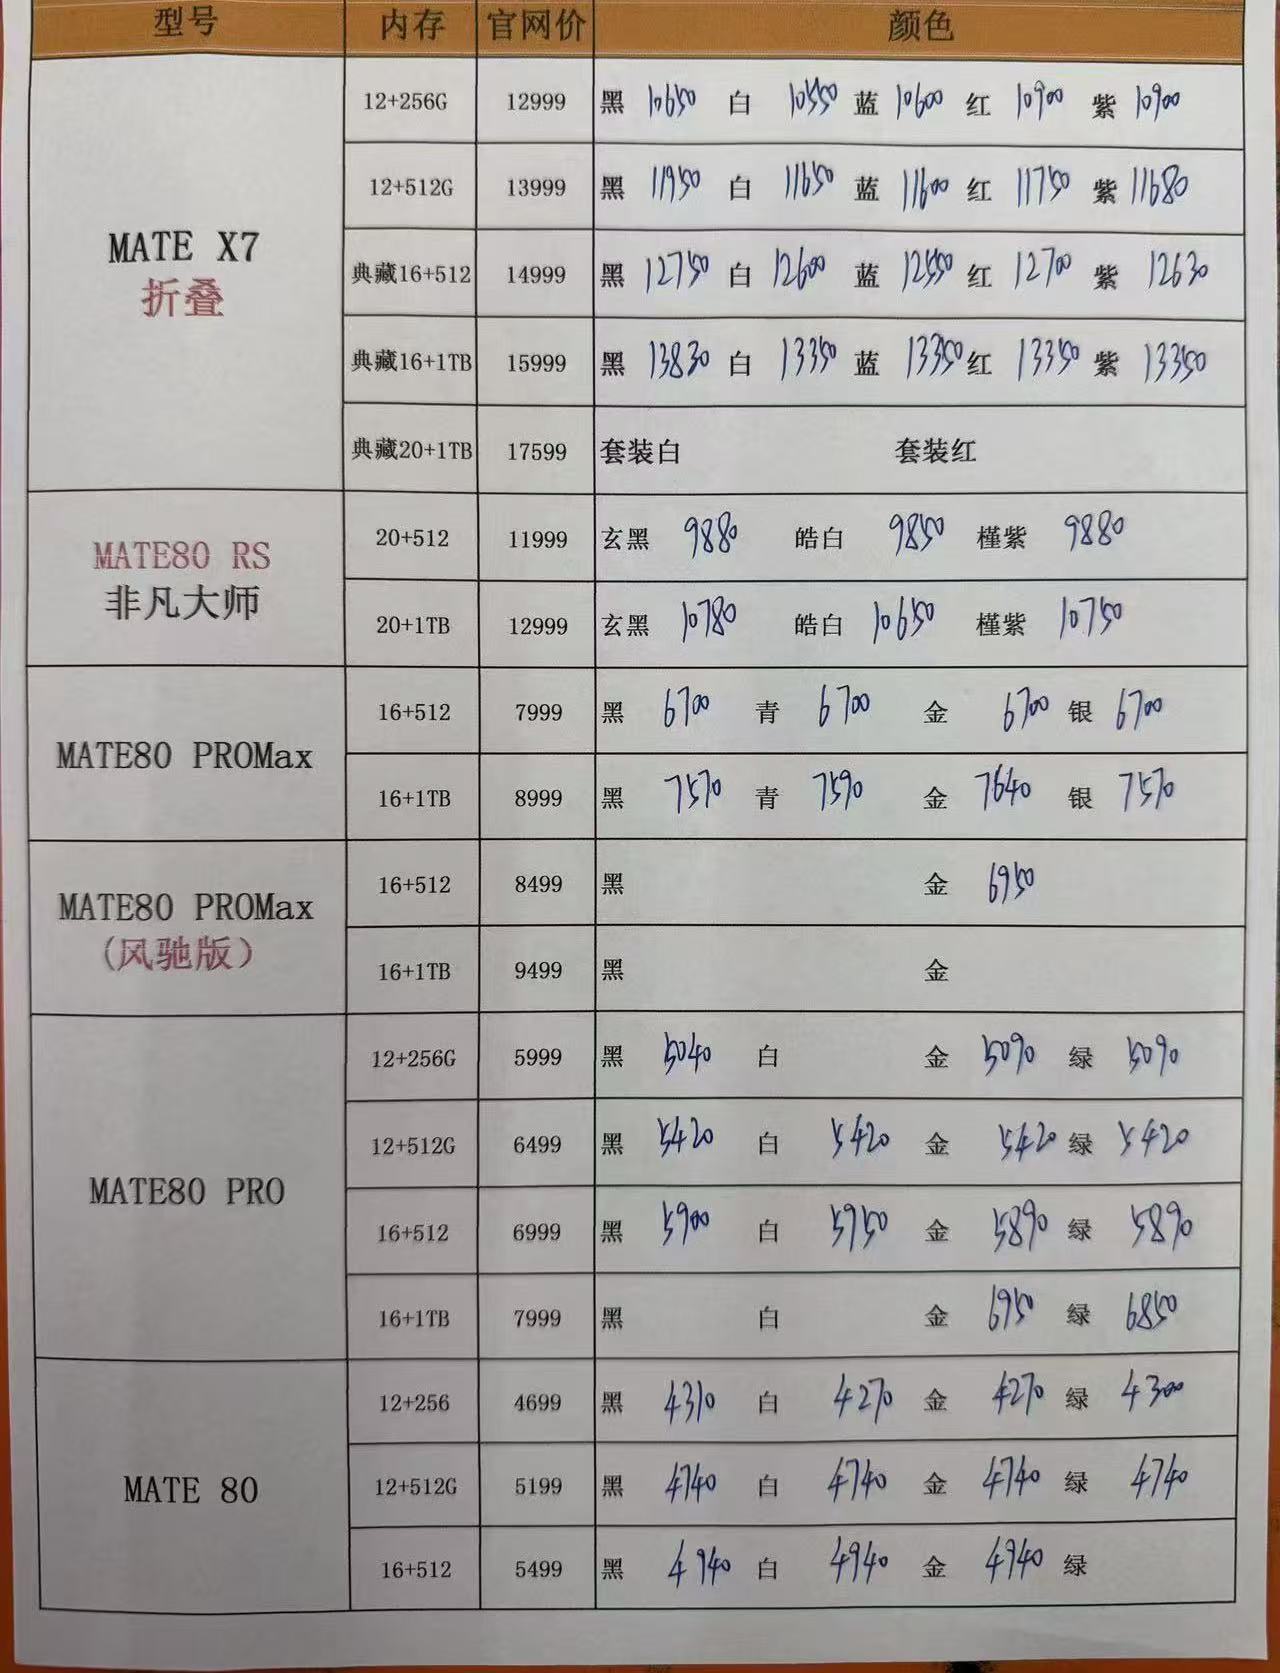 型号 内存 官网价 颜色
12+256G 12999 黑 10650 白 10550 蓝 10600 红 10900 紫 10900
12+512G 13999 黑 11950 白 11650 蓝 11600 红 11750 紫 11680
MATE X7
折叠
典藏16+512 14999 黑 12750 白 12600 蓝 12550 红 12700 紫 12630
典藏16+1TB 15999 黑 13830 白 13350 蓝 13350 红 13350 紫 13350
典藏20+1TB 17599 套装白 套装红
MATE80 RS
非凡大师
20+512 11999 玄黑 9880 皓白 9850 槿紫 9880
20+1TB 12999 玄黑 10780 皓白 10650 槿紫 10750
MATE80 PROMax
16+512 7999 黑 6700 青 6700 金 6700 银 6700
16+1TB 8999 黑 7570 青 7590 金 7640 银 7570
MATE80 PROMax
(风驰版)
16+512 8499 黑 金 6950
16+1TB 9499 黑 金
MATE80 PRO
12+256G 5999 黑 5040 白 金 5090 绿 5090
12+512G 6499 黑 5420 白 5420 金 5420 绿 5420
16+512 6999 黑 5900 白 5950 金 5890 绿 5890
16+1TB 7999 黑 白 金 6950 绿 6850
MATE 80
12+256 4699 黑 4310 白 4270 金 4270 绿 4300
12+512G 5199 黑 4740 白 4740 金 4740 绿 4740
16+512 5499 黑 4940 白 4940 金 4940 绿